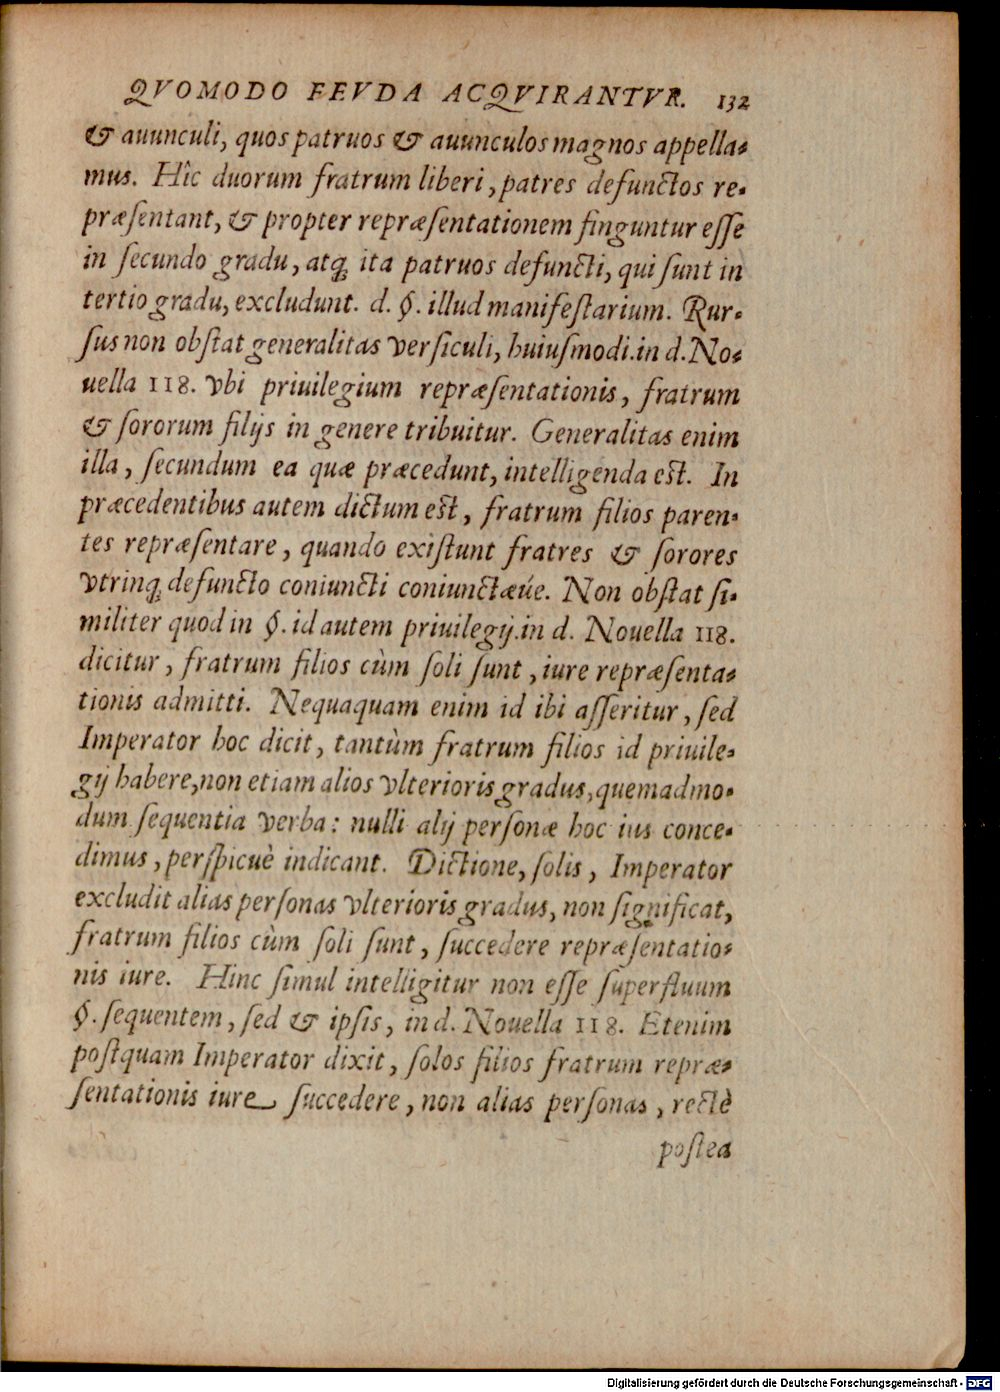 QVOMODO FEVDA ACQVIRANTVR. 132
& auunculi, quos patruos & auunculos magnos appella-
mus. Hîc duorum fratrum liberi, patres defunctos re-
præſentant, & propter repræſentationem finguntur eſſe
in ſecundo gradu, atq́; ita patruos defuncti, qui ſunt in
tertio gradu, excludunt. d. §. illud manifeſtarium. Rur-
ſus non obſtat generalitas verſiculi, huiuſmodi. in d. No-
uella 118. vbi priuilegium repræſentationis, fratrum
& ſororum filijs in genere tribuitur. Generalitas enim
illa, ſecundum ea quæ præcedunt, intelligenda eſt. In
præcedentibus autem dictum eſt, fratrum filios paren-
tes repræſentare, quando exiſtunt fratres & ſorores
vtrinq́; defuncto coniuncti coniunctæúe. Non obſtat ſi-
militer quod in §. id autem priuilegij. in d. Nouella 118.
dicitur, fratrum filios cùm ſoli ſunt, iure repræſenta-
tionis admitti. Nequaquam enim id ibi aſſeritur, ſed
Imperator hoc dicit, tantùm fratrum filios id priuile-
gij habere, non etiam alios vlterioris gradus, quemadmo-
dum ſequentia verba: nulli alij perſonæ hoc ius conce-
dimus, perſpicuè indicant. Dictione, ſolis, Imperator
excludit alias perſonas vlterioris gradus, non ſignificat,
fratrum filios cùm ſoli ſunt, ſuccedere repræſentatio-
nis iure. Hinc ſimul intelligitur non eſſe ſuperfluum
§. ſequentem, ſed & ipſis, in d. Nouella 118. Etenim
poſtquam Imperator dixit, ſolos filios fratrum repræ-
ſentationis iure ſuccedere, non alias perſonas, rectè
poſtea
Digitalisierung gefördert durch die Deutsche Forschungsgemeinschaft - DFG